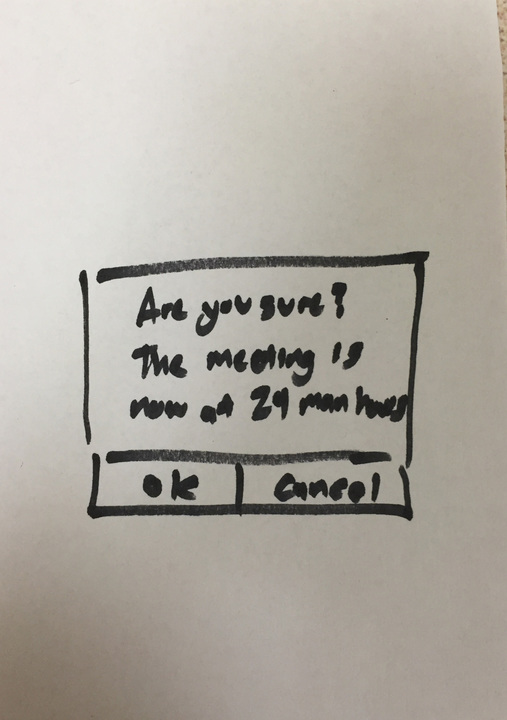 Are you sure?
The meeting is
now at 24 man hours
OK
Cancel